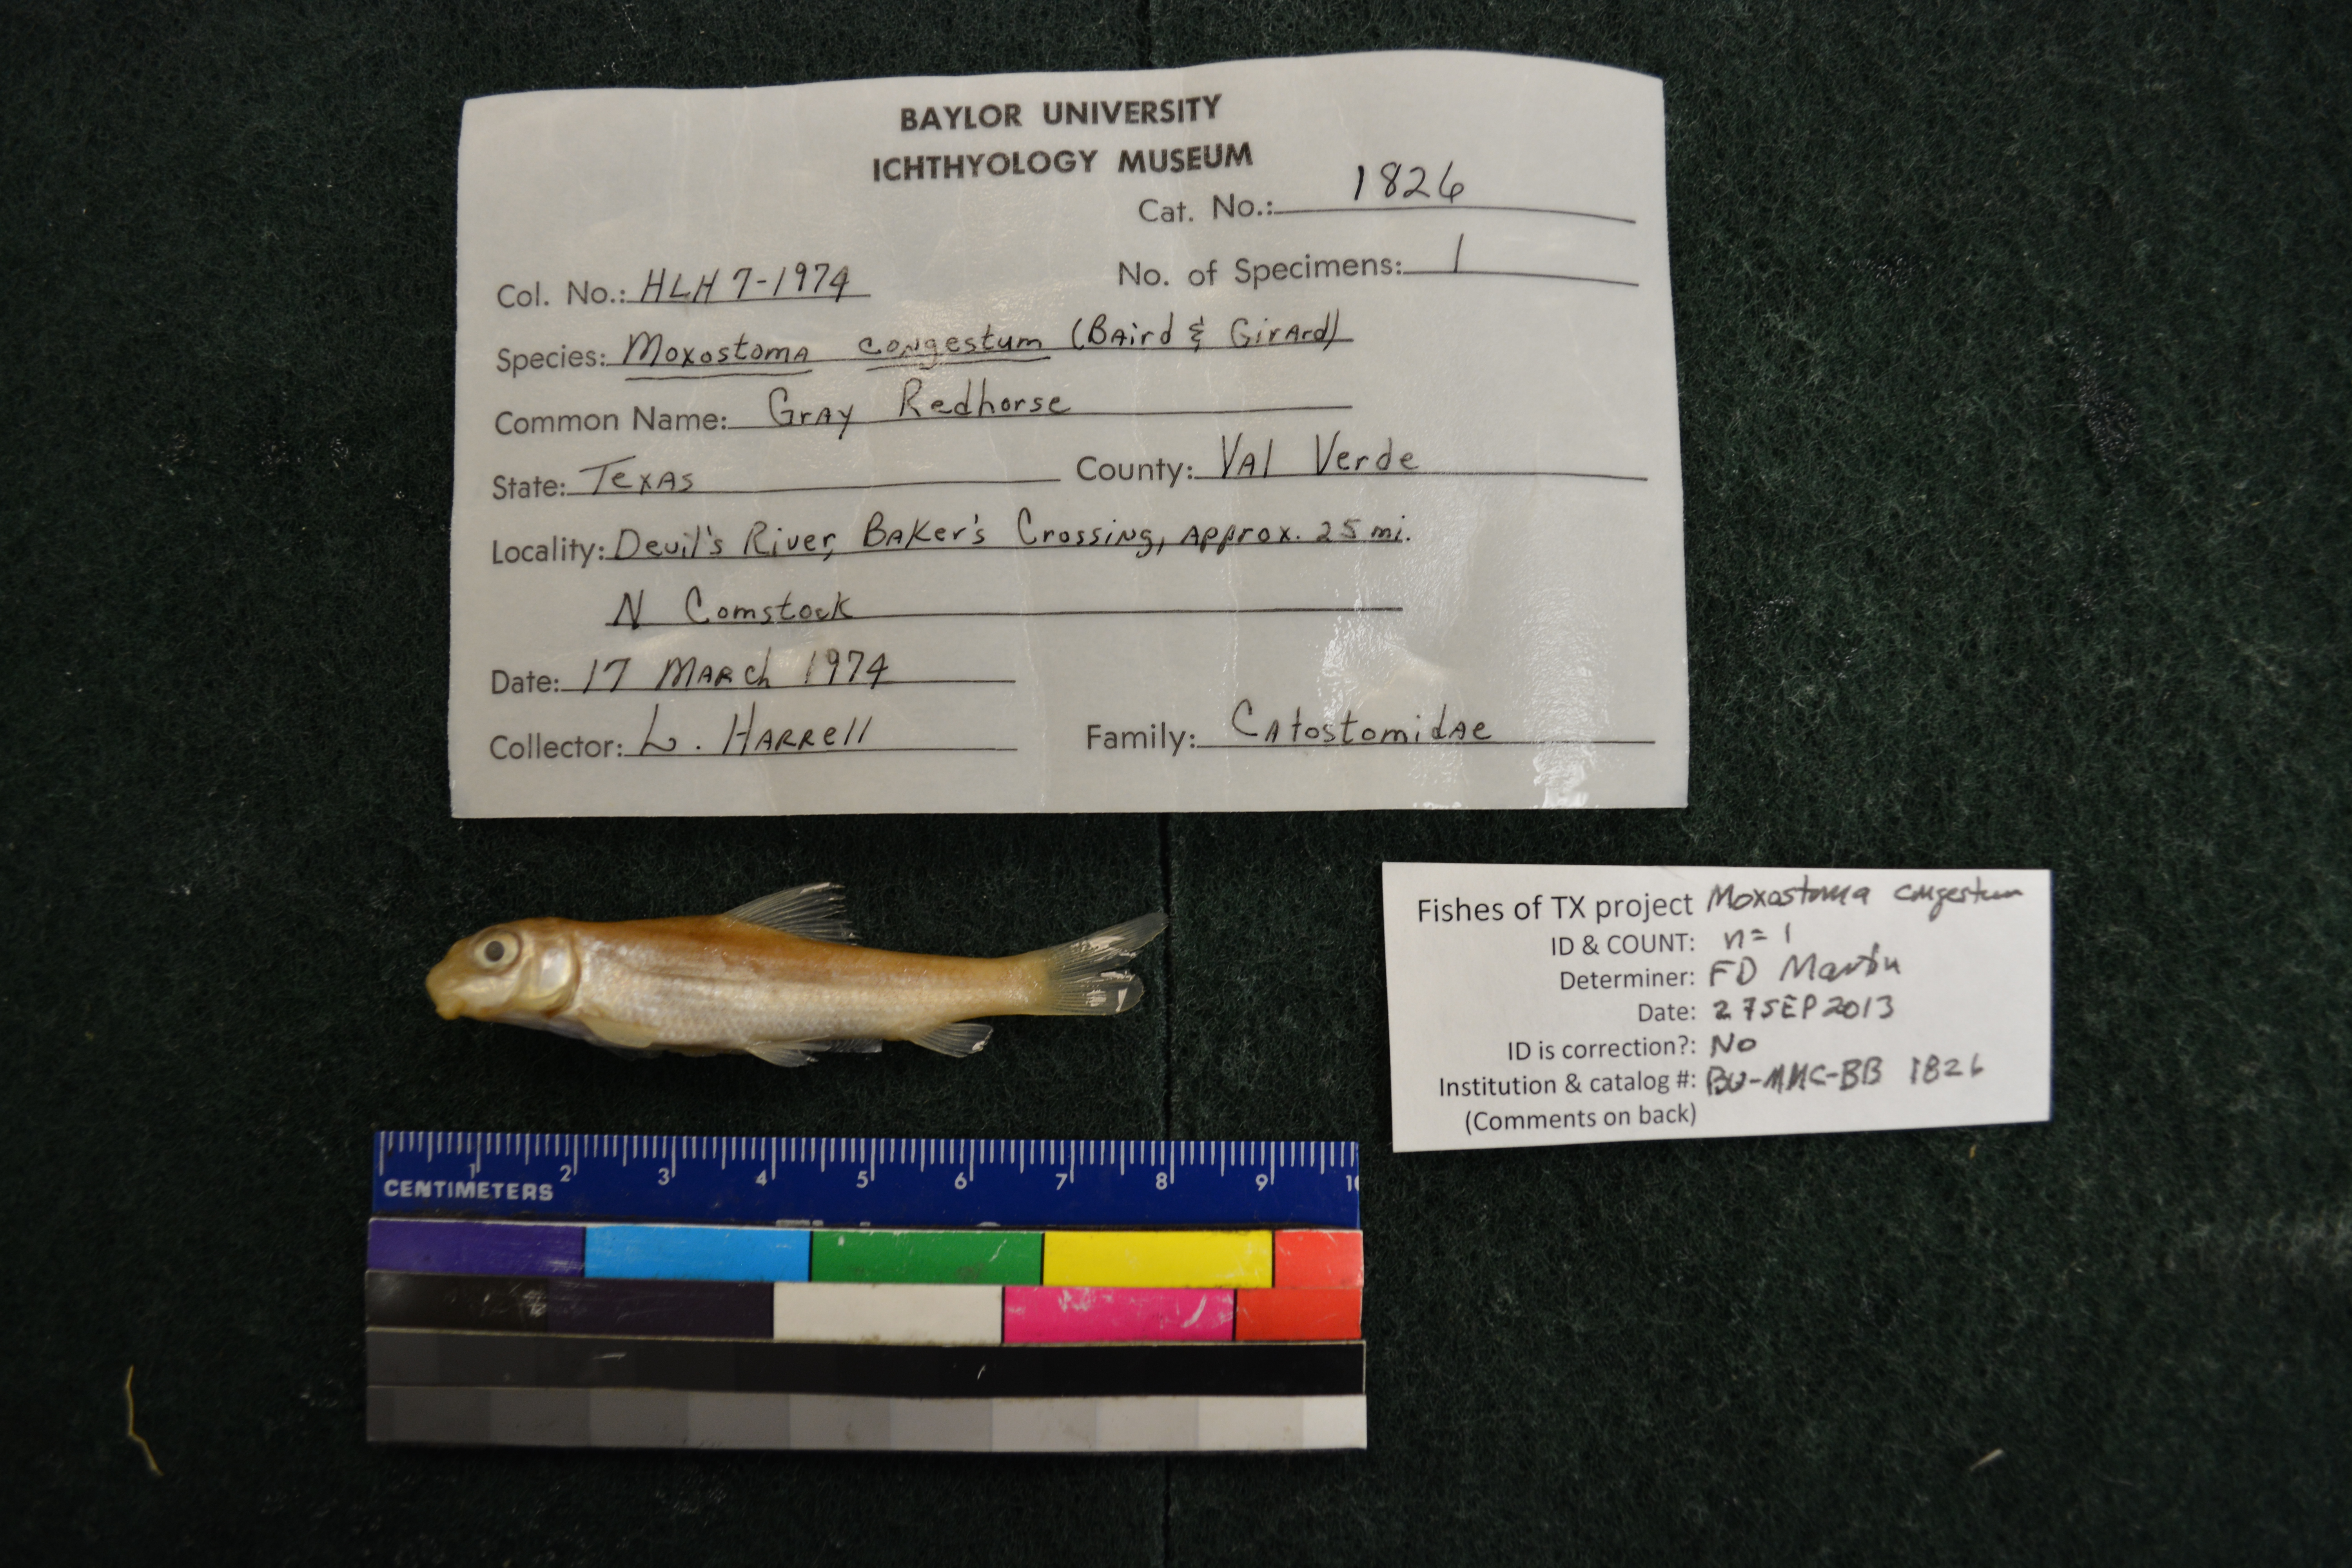 BAYLOR UNIVERSITY
ICHTHYOLOGY MUSEUM
Cat. No.: 1826
Col. No.: HLH 7-1974 No. of Specimens: 1
Species: Moxostoma congestum (Baird & Girard)
Common Name: Gray Redhorse
State: Texas County: Val Verde
Locality: Devil's River, Baker's Crossing, approx. 25 mi.
N Comstock
Date: 17 March 1974
Collector: L. Harrell Family: Catostomidae
Fishes of TX project Moxostoma congestum
ID & COUNT: n=1
Determiner: FD Martin
Date: 27SEP2013
ID is correction?: No
Institution & catalog #: BU-MMC-BB 1826
(Comments on back)
1 2 3 4 5 6 7 8 9
CENTIMETERS